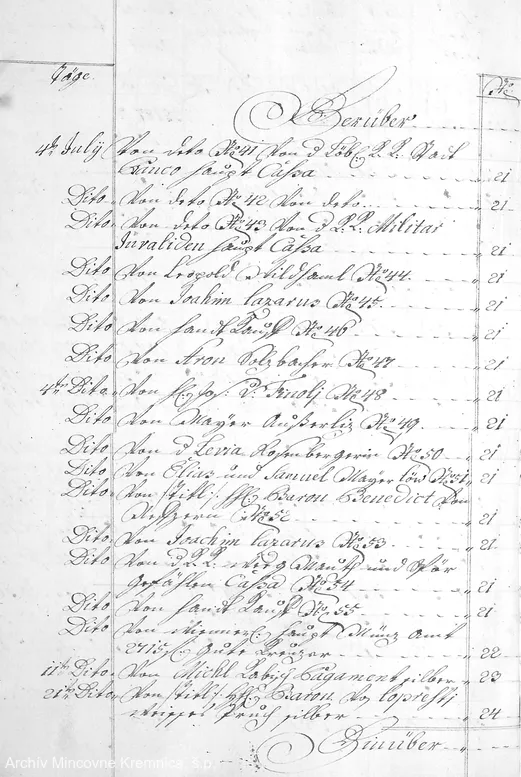 Täge. No.
Herüber
4ten July Von deto No 41 Von d Löbl K: K: Stadt
Banco Haupt Cassa 21
Dito Von deto No 42 Von deto 21
Dito Von deto No 43 Von d K: K: Militar
Invaliden Haupt Cassa 21
Dito Von Leopold No 44 21
Dito Von Joachim Lazarus No 45 21
Dito Von No 46 21
Dito Von Aron Sulzbacher No 47 21
4ten Dito Von No 48 21
Dito Von Mayer Außerliz No 49 21
Dito Von d Levia Rosenbergerin No 50 21
Dito Von Elias und Samuel Mayer Löw No 51 21
Dito Von Baron Benedict Von
No 52 21
Dito Von Joachim Lazarus No 53 21
Dito Von d K: K: Mauth und
Gefählen Cassa No 54 21
Dito Von No 55 21
Dito Von Haupt Münz Amt
2715 Kreuzer 22
11ten Dito Von Michl Pagament silber 23
21ten Dito Von Baron
Bruch silber 24
Hinüber
Archív Mincovne Kremnica, š.p.